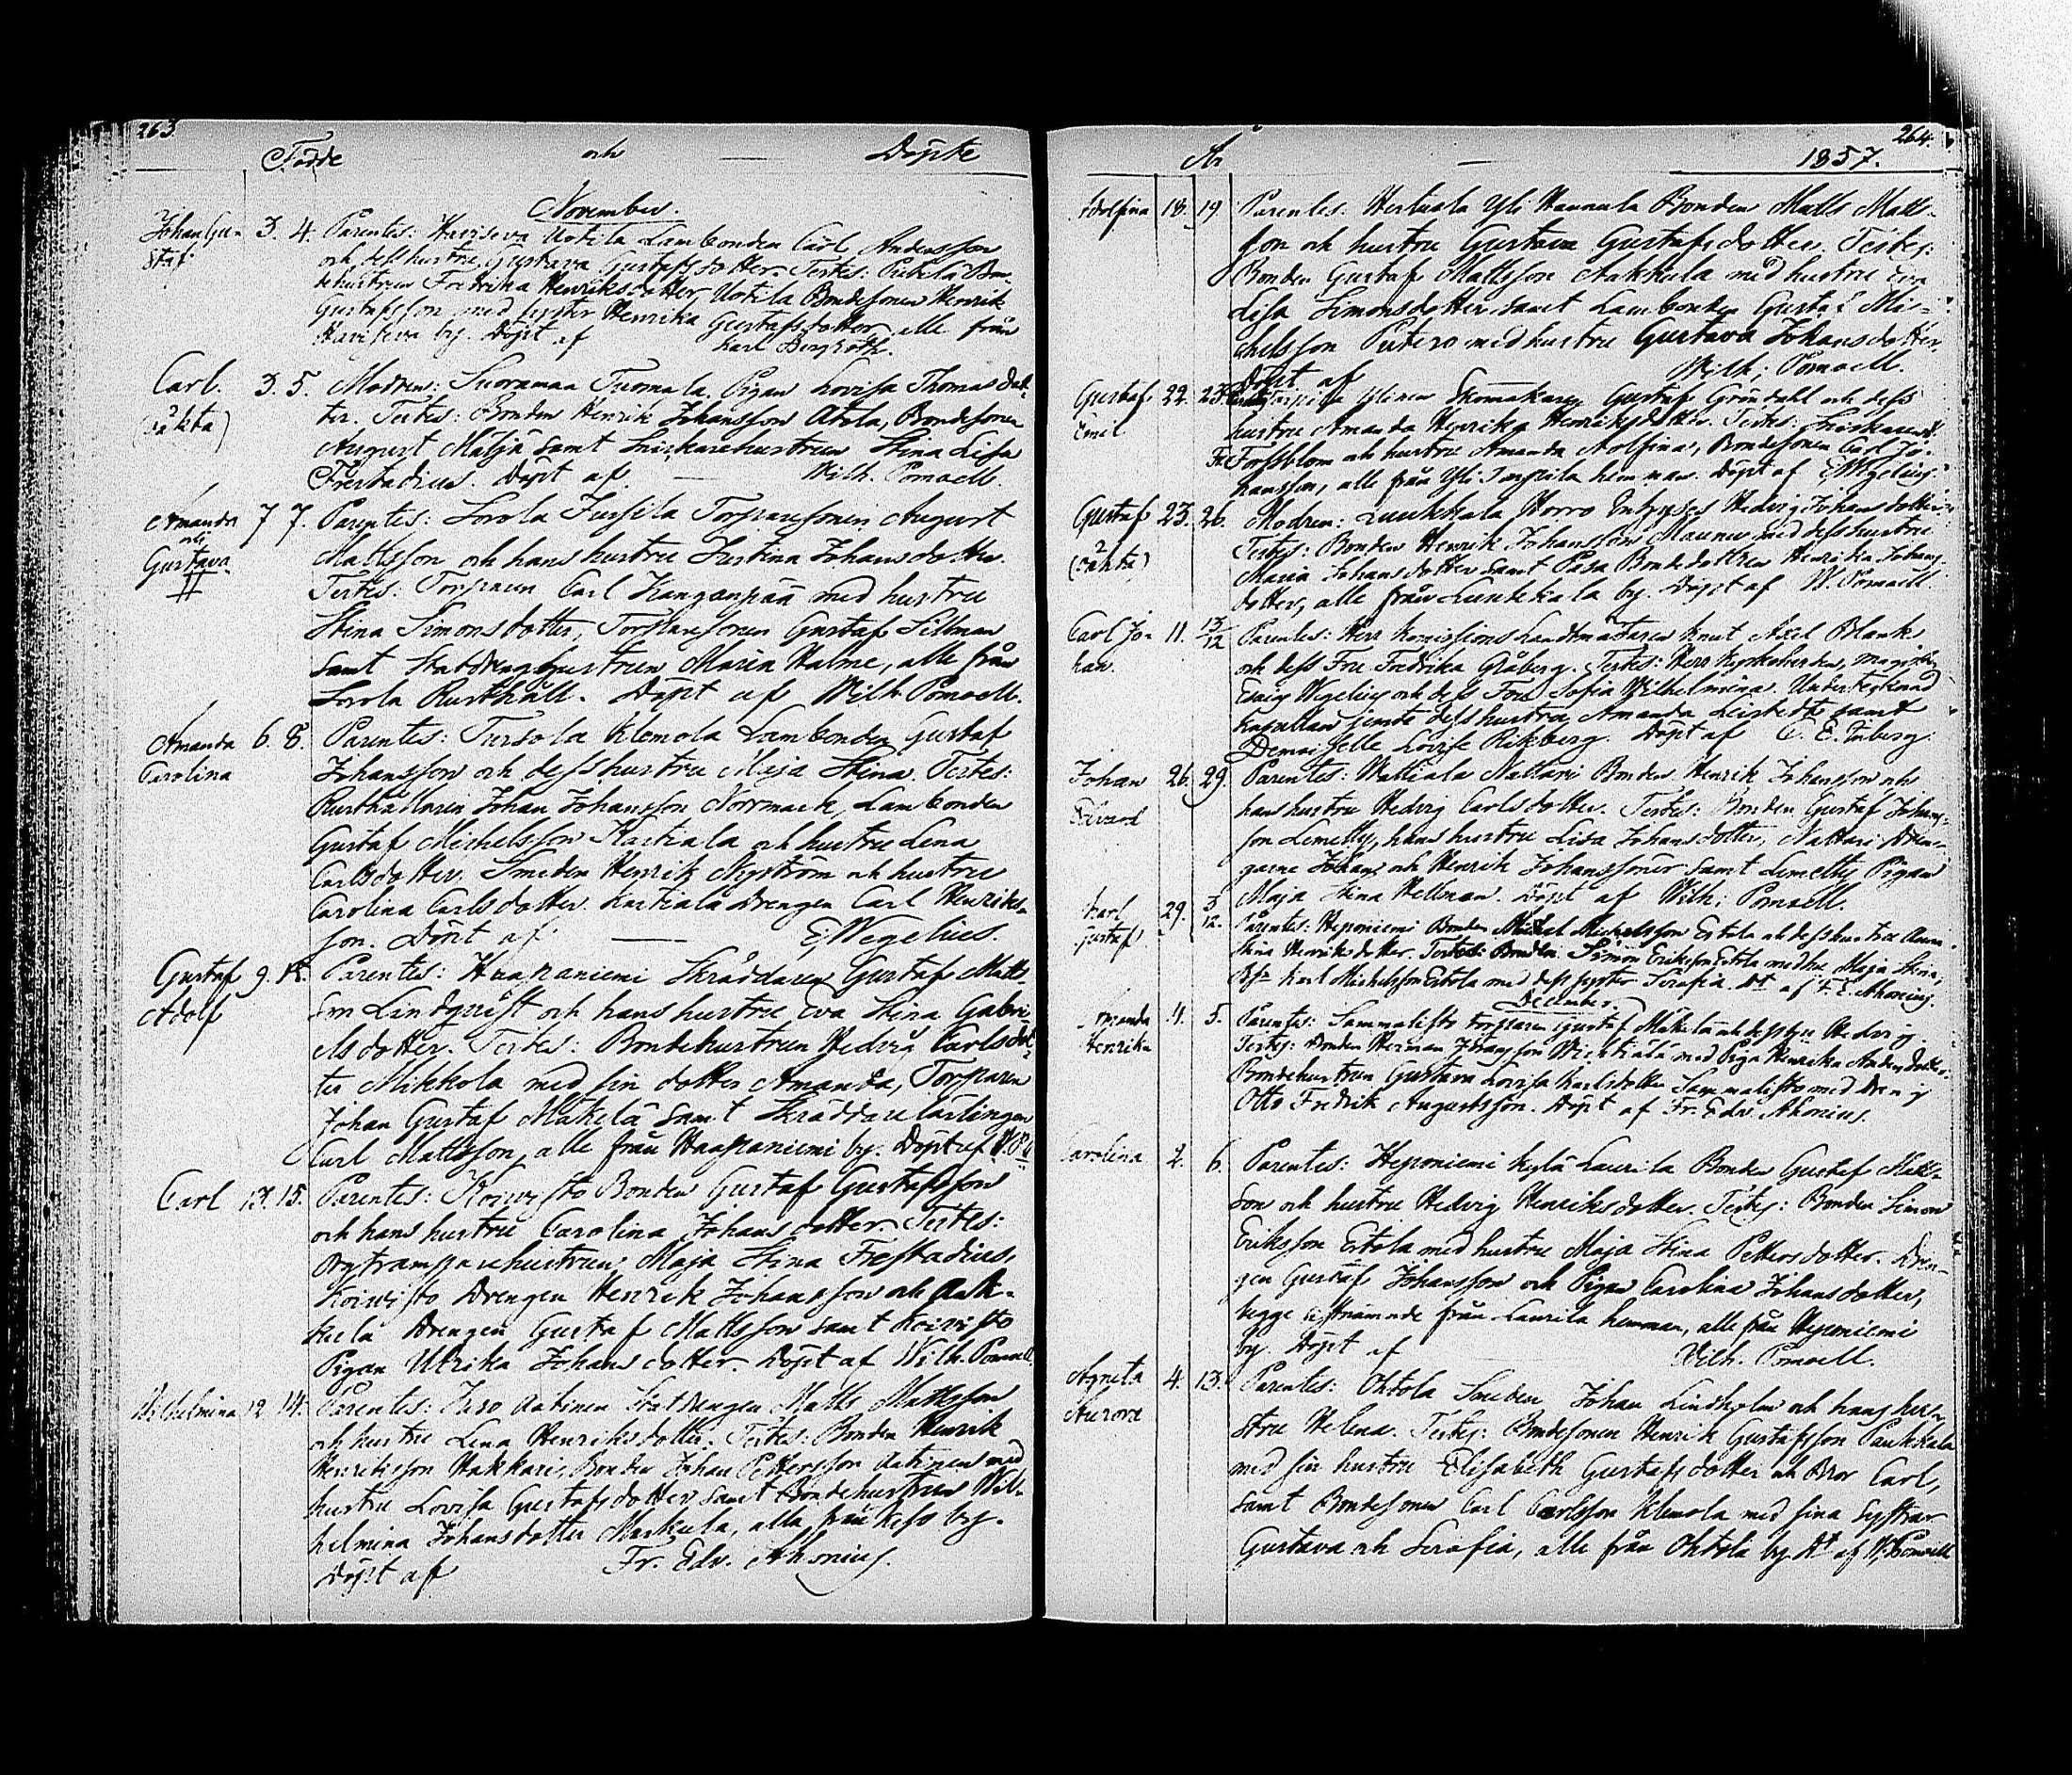 263.
Födde och — Döpte
November.
Johan Gu- 3. 4. Parentes: Haviseva Uotila Lambonden Carl Andersson
staf och dess hustru Gustava Gustafsdotter. Testes: Bon-
dehustrun Fredrika Henriksdotter, Uotila Bondesonen Henrik
Gustafsson med syster Henrika Gustafsdotter, alle från
Haviseva by. Döpt af Karl Bergroth.
Carl. 3. 5. Modren: Suoramaa Tuomala Pigan Lovisa Thomasdot-
(oäkta) ter. Testes: Bonden Henrik Johansson Atola, Bondesonen
August Mäljä samt Snickarehustrun Stina Lisa
Frestadius. Döpt af — Wilh. Pomoell.
Amanda 7 7. Parentes: Torparesonen August
och Mattsson och hans hustru Justina Johansdotter.
Gustava Testes: Torparen Carl Kanganpää med hustru
Stina Simonsdotter, Torparesonen Gustaf Sillman
samt Statdrengshustrun Maria Halme, alle från
Rusthåll. Döpt af Wilh. Pomoell.
Amanda 6. 8. Parentes: Tursola Klemola Lambonden Gustaf
Carolina Johansson och dess hustru Maja Stina. Testes:
Rusthållaren Johan Johansson Norrmark, Lambonden
Gustaf Michelsson Kartiala och hustru Lena
Carlsdotter. Smeden Henrik Nyström och hustru
Carolina Carlsdotter. Kartiala Drengen Carl Henriks-
son. Döpt af — E Wegelius.
Gustaf 9. Parentes: Haapaniemi Skräddaren Gustaf Matts-
Adolf son Lindqvist och hans hustru Eva Stina Gabri-
elsdotter. Testes: Bondehustrun Hedvig Carlsdot-
ter Mikkola med sin dotter Amanda, Torparen
Johan Gustaf Mäkelä samt Skräddarelärlingen
Carl Mattsson, alle från Haapaniemi by. Döpt af W. P.
Carl 13. 15. Parentes: Koivisto Bonden Gustaf Gustafsson
och hans hustru Carolina Johansdotter. Testes:
Orgtramparehustrun Maja Stina Frestadius,
Koivisto Drengen Henrik Johansson och Aak-
kula Drengen Gustaf Mattsson samt Koivisto
Pigan Ulrika Johansdotter. Döpt af Wilh. Pomoell
Wilhelmina 12 14. Parentes: Aatinen Statdrengen Matts Mattsson
och hustru Lena Henriksdotter. Testes: Bonden Henrik
Henriksson Hakkari, Bonden Johan Pettersson Aatinen med
hustru Lovisa Gustafsdotter samt Bondehustrun Wil-
helmina Johansdotter Markula, alla från by.
Döpt af Fr. Edv. Ahonius.
264.
År — 1857.
Adolfina 18. 19. Parentes: Hertuala Yli Hannula Bonden Matts Matts-
son och hustru Gustava Gustafsdotter. Testes:
Bonden Gustaf Mattsson Aakkula med hustru Eva
Lisa Simonsdotter samt Lambonden Gustaf Mi-
chelsson Putiro med hustru Gustava Johansdotter.
Döpt af Wilh: Pomoell.
Gustaf 22. 23. Skomakaren Gustaf Gröndahl och dess
Emil hustru Amanda Henrika Henriksdotter. Testes:
Forssblom och hustru Amanda Adolfina, Bondesonen Carl Jo-
hansson, alle från Yli hemman. Döpt af E Wegelius.
Gustaf 23. 26. Modren: Luukkala Horro Inhyses Hedvig Johansdotter.
(oäkta) Testes: Bonden Henrik Johansson Maunu med dess hustru
Maria Johansdotter samt Pasa Bondedottren Henrika Johans-
dotter, alle från Luukkala by. Döpt af W. Pomoell
Carl Jo- 11. 13/12 Parentes: Herr Komissions Landtmätaren Knut Axel Blank
han. och dess Fru Fredrika Gråberg. Testes: Herr Kyrkoherden, Magister
Esaias Wegelius och dess Fru Sofia Wilhelmina. Undertecknad
Kapellan jemte dess hustru, Amanda Leistedt samt
Demoiselle Lovise Rikberg. Döpt af C. E. Inberg.
Johan 26. 29. Parentes: Wattiala Nattari Bonden Henrik Johansson och
Edvard hans hustru Hedvig Carlsdotter. Testes: Bonden Gustaf Johans-
son Lemetty, hans hustru Lisa Johansdotter, Nattari Dren-
garne Johan och Henrik Johanssöner samt Lemetty Pigan
Maja Stina Hellman. Döpt af Wilh: Pomoell.
Karl 29. 3/12. Parentes: Heponiemi Bonden Michel Michelsson Ertola och dess hustru Anna
Gustaf Stina Henriksdotter. Testes: Bonden Simon Eriksson Ertola med hu. Maja Stina,
Karl Michelsson Ertola med dess syster Serafia. Dt af F. E. Ahonius.
December.
Amanda 4. 5. Parentes: Sammalisto torparen Gustaf Mäkelä och dess hu Hedvig.
Henrika Testes: Bonden Herman Johansson med Piga Henrika Andersdotter
Bondehustrun Gustava Lovisa Karlsdotter Sammalisto med Dreng
Otto Fredrik Augustsson. Döpt af Fr. Edv. Ahonius.
Carolina 2. 6. Parentes: Heponiemi Kylä Laurila Bonden Gustaf Matts-
son och hustru Hedvig Henriksdotter. Testes: Bonden Simon
Eriksson Ertola med hustru Maja Stina Pettersdotter. Dren-
gen Gustaf Johansson och Pigan Carolina Johansdotter,
begge sistnämnde från Laurila hemman, alle från Heponiemi
by. Döpt af Wilh. Pomoell.
Agneta 4. 13. Parentes: Ohtola Smeden Johan Lindholm och hans hu-
Aurora stru Helena. Testes: Bondesonen Henrik Gustafsson Paukkala
med sin hustru Elisabeth Gustafsdotter och Bror Carl,
samt Bondesonen Carl Carlsson Klemola med sina Systrar
Gustava och Serafia, alle från Ohtola by Dt af W. Pomoell